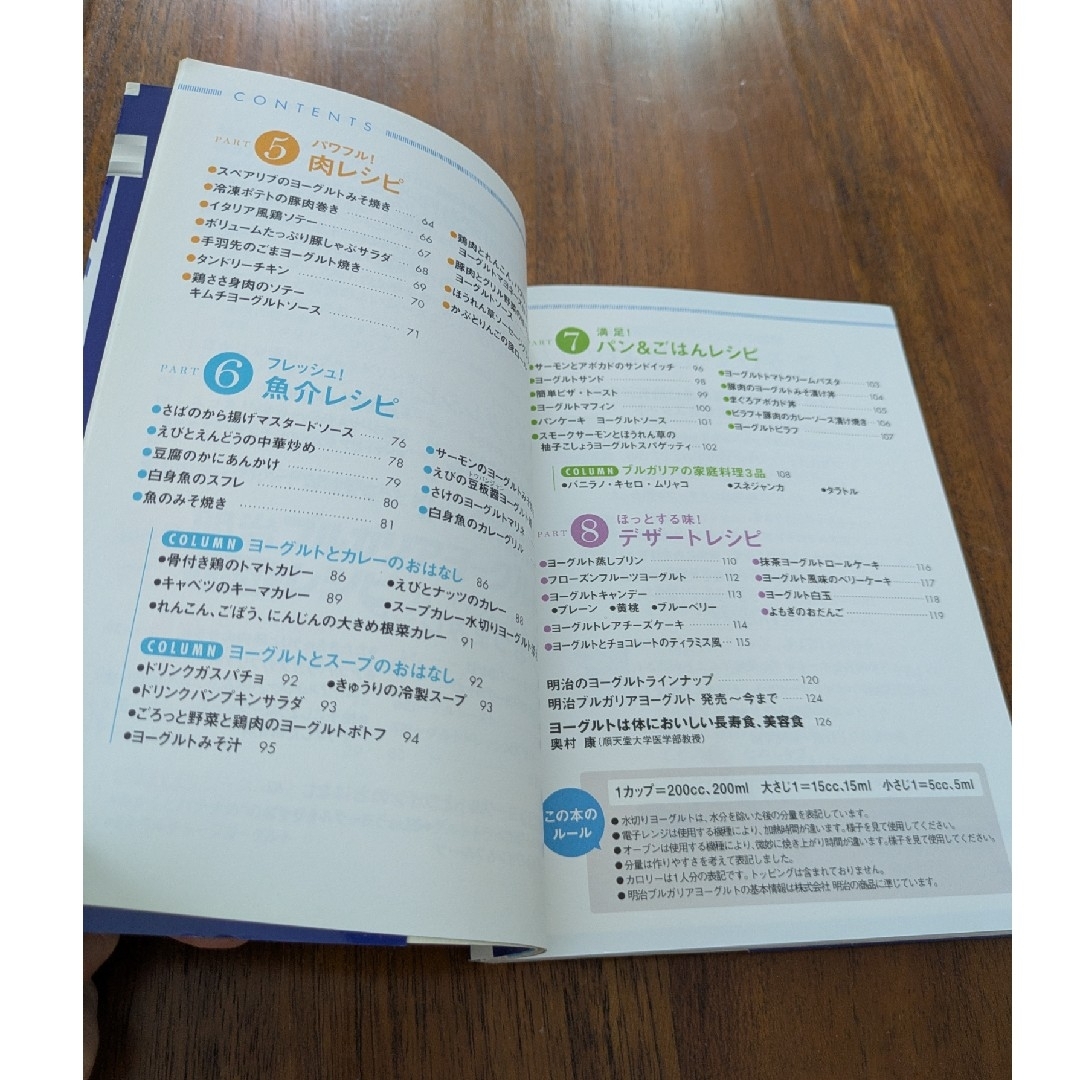 CONTENTS
PART 5 パワフル!
肉レシピ
●スペアリブのヨーグルトみそ焼き …… 64
●冷凍ポテトの豚肉巻き …… 66
●イタリア風鶏ソテー …… 67
●ボリュームたっぷり豚しゃぶサラダ …… 68
●手羽先のごまヨーグルト焼き …… 69
●タンドリーチキン …… 70
●鶏ささ身肉のソテー
キムチヨーグルトソース …… 71
●鶏肉とれんこん
●豚肉とグリル野菜の
ヨーグルトソース
●ほうれん草ソーセージ
●かぶとりんごの豚ロ
PART 6 フレッシュ!
魚介レシピ
●さばのから揚げマスタードソース …… 76
●えびとえんどうの中華炒め …… 78
●豆腐のかにあんかけ …… 79
●白身魚のスフレ …… 80
●魚のみそ焼き …… 81
●サーモンのヨーグルトみそ
●えびの豆板醤ヨーグルト
●さけのヨーグルトマリネ
●白身魚のカレーグリル
COLUMN ヨーグルトとカレーのおはなし 86
●骨付き鶏のトマトカレー 86
●キャベツのキーマカレー 89
●えびとナッツのカレー 88
●スープカレー水切りヨーグルト
●れんこん、ごぼう、にんじんの大きめ根菜カレー 91
COLUMN ヨーグルトとスープのおはなし 92
●ドリンクガスパチョ 92
●きゅうりの冷製スープ 93
●ドリンクパンプキンサラダ 93
●ごろっと野菜と鶏肉のヨーグルトポトフ 94
●ヨーグルトみそ汁 95
PART 7 満足!
パン&ごはんレシピ
●サーモンとアボカドのサンドイッチ …… 96
●ヨーグルトサンド …… 98
●簡単ピザ・トースト …… 99
●ヨーグルトマフィン …… 100
●パンケーキ ヨーグルトソース …… 101
●スモークサーモンとほうれん草の
柚子こしょうヨーグルトスパゲッティ …… 102
●ヨーグルトトマトクリームパスタ …… 103
●豚肉のヨーグルトみそ漬け丼 …… 104
●まぐろアボカド丼 …… 105
●ピラフ+豚肉のカレーソース漬け焼き …… 106
●ヨーグルトピラフ …… 107
COLUMN ブルガリアの家庭料理3品 108
●パニラノ・キセロ・ムリャコ ●スネジャンカ ●タラトル
PART 8 ほっとする味!
デザートレシピ
●ヨーグルト蒸しプリン …… 110
●フローズンフルーツヨーグルト …… 112
●ヨーグルトキャンデー …… 113
●プレーン ●黄桃 ●ブルーベリー
●ヨーグルトレアチーズケーキ …… 114
●ヨーグルトとチョコレートのティラミス風 …… 115
●抹茶ヨーグルトロールケーキ …… 116
●ヨーグルト風味のベリーケーキ …… 117
●ヨーグルト白玉 …… 118
●よもぎのおだんご …… 119
明治のヨーグルトラインナップ …… 120
明治ブルガリアヨーグルト 発売〜今まで …… 124
ヨーグルトは体においしい長寿食、美容食 126
奥村 康(順天堂大学医学部教授)
この本の
ルール
1カップ=200cc、200ml 大さじ1=15cc、15ml 小さじ1=5cc、5ml
●水切りヨーグルトは、水分を除いた後の分量を表記しています。
●電子レンジは使用する機種により、加熱時間が違います。様子を見て使用してください。
●オーブンは使用する機種により、微妙に焼き上がり時間が違います。様子を見て使用してください。
●分量は作りやすさを考えて表記しました。
●カロリーは1人分の表記です。トッピングは含まれておりません。
●明治ブルガリアヨーグルトの基本情報は株式会社 明治の商品に準じています。